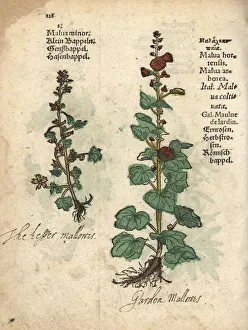 128
1.
Malua minor.
Klein Bappeln.
Genßbappel.
Hasenbappel.
Malua hor-
tensis.
Malua ar-
borea.
Ital. Mal-
ua colti-
uata.
Gal. Maulue
de Iardin.
Ernrosen.
Herbstro-
sen.
Römisch
bappel.
The lesser mallowes.
Garden Mallowes